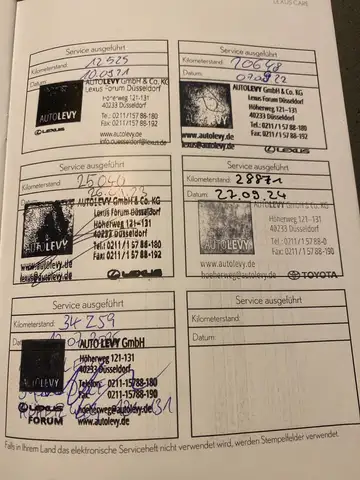 LEXUS CARE
Service ausgeführt
Kilometerstand: 12 525
Datum: 10.09.21
AUTO LEVY GmbH & Co. KG
Lexus Forum Düsseldorf
Höherweg 121-131
40233 Düsseldorf
AUTOLEVY
Tel.: 0211/1 57 88-180
Fax: 0211/1 57 88-192
www.autolevy.de
LEXUS
Service ausgeführt
Kilometerstand: 20648
Datum:
AUTOLEVY GmbH & Co. KG
Lexus Forum Düsseldorf
Höherweg 121-131
40233 Düsseldorf
Tel.: 0211/1 57 88-180
Fax: 0211/1 57 88-192
www.autolevy.de
lexus@autolevy.de
LEXUS
Service ausgeführt
Kilometerstand: 25040
Datum:
AUTO LEVY GmbH & Co. KG
Lexus Forum Düsseldorf
Höherweg 121-131
40233 Düsseldorf
AUTOLEVY
Tel.: 0211/1 57 88-180
Fax: 0211/1 57 88-192
www.autolevy.de
lexus@autolevy.de
LEXUS
Service ausgeführt
Kilometerstand: 28871
Datum: 27.09.24
AUTO LEVY GmbH & Co. KG
Höherweg 121-131
40233 Düsseldorf
AUTOLEVY
Tel.: 0211/1 57 88-0
Fax: 0211/1 57 88-190
www.autolevy.de
hoeherweg@autolevy.de
TOYOTA
Service ausgeführt
Kilometerstand: 34 259
Datum:
AUTO LEVY GmbH
Höherweg 121-131
40233 Düsseldorf
AUTOLEVY
Telefon: 0211-15788-180
Telefax: 0211-15788-190
LEXUS
hoeherweg@autolevy.de
FORUM
www.autolevy.de
Service ausgeführt
Kilometerstand:
Datum:
Falls in Ihrem Land das elektronische Serviceheft nicht verwendet wird, werden Stempelfelder verwendet.